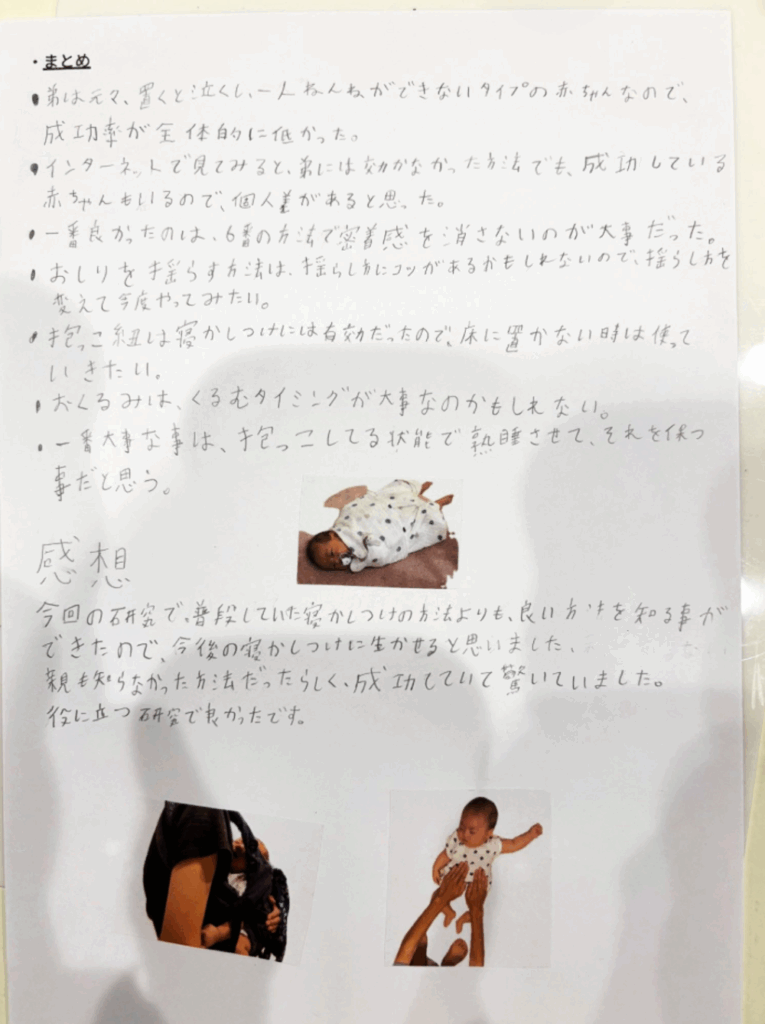 ・まとめ
・弟は元々、置くと泣くし、一人ねんねができないタイプの赤ちゃんなので、
成功率が全体的に低かった。
・インターネットで見てみると、弟には効かなかった方法でも、成功している
赤ちゃんもいるので、個人差があると思った。
・一番良かったのは、6番の方法で密着感を消さないのが大事だった。
・おしりを揺らす方法は、揺らし方にコツがあるかもしれないので、揺らし方を
変えて今度やってみたい。
・抱っこ紐は寝かしつけには有効だったので、床に置かない時は使って
いきたい。
・おくるみは、くるむタイミングが大事なのかもしれない。
・一番大事な事は、抱っこしてる状態で熟睡させて、それを保つ
事だと思う。
感想
今回の研究で、普段していた寝かしつけの方法よりも、良い方法を知る事が
できたので、今後の寝かしつけに生かせると思いました、
親も知らなかった方法だったらしく、成功していて驚いていました。
役に立つ研究で良かったです。